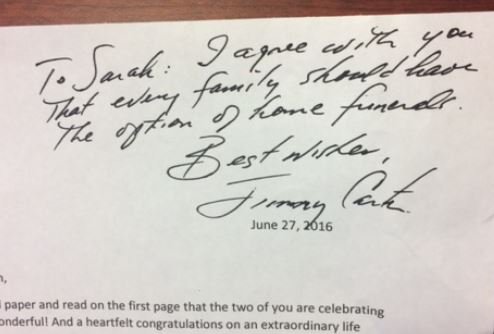 To Sarah: I agree with you
That every family should have
The option of home funerals.
Best wishes,
Jimmy Carter
June 27, 2016
paper and read on the first page that the two of you are celebrating
onderful! And a heartfelt congratulations on an extraordinary life